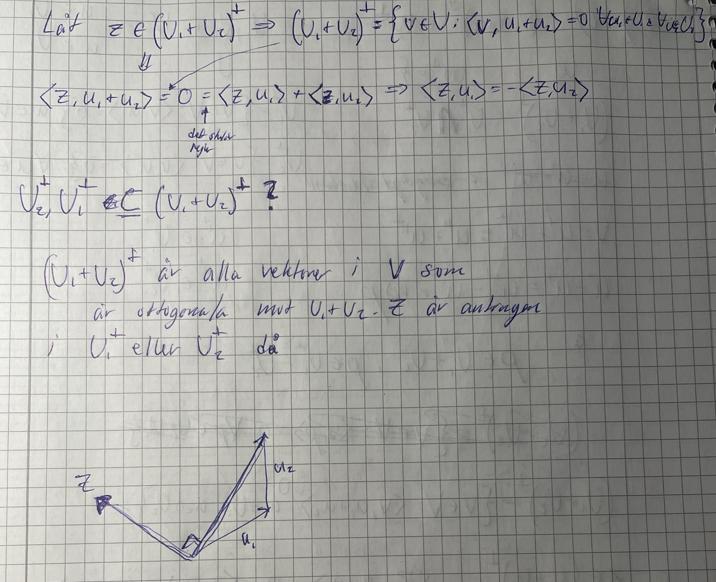 Låt z ∈ (U₁+U₂)^⊥ ⇒ (U₁+U₂)^⊥ = {v∈V : ⟨v, u₁+u₂⟩ = 0 ∀u₁∈U₁ ∀u₂∈U₂}
⇓
⟨z, u₁+u₂⟩ = 0 = ⟨z, u₁⟩ + ⟨z, u₂⟩ ⇒ ⟨z, u₁⟩ = -⟨z, u₂⟩
↑
U₂^⊥, U₁^⊥ ⊆ (U₁+U₂)^⊥ ?
(U₁+U₂)^⊥ är alla vektorer i V som
är ortogonala mot U₁+U₂. z är antingen
i U₁^⊥ eller U₂^⊥ då
z
u₂
u₁